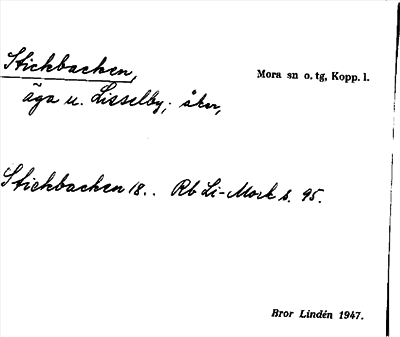 Stickbacken,
Mora sn o. tg, Kopp. l.
äga u. Lisselby; åker,
Stickbacken 18.. Rb Li-Mork s. 95.
Bror Lindén 1947.